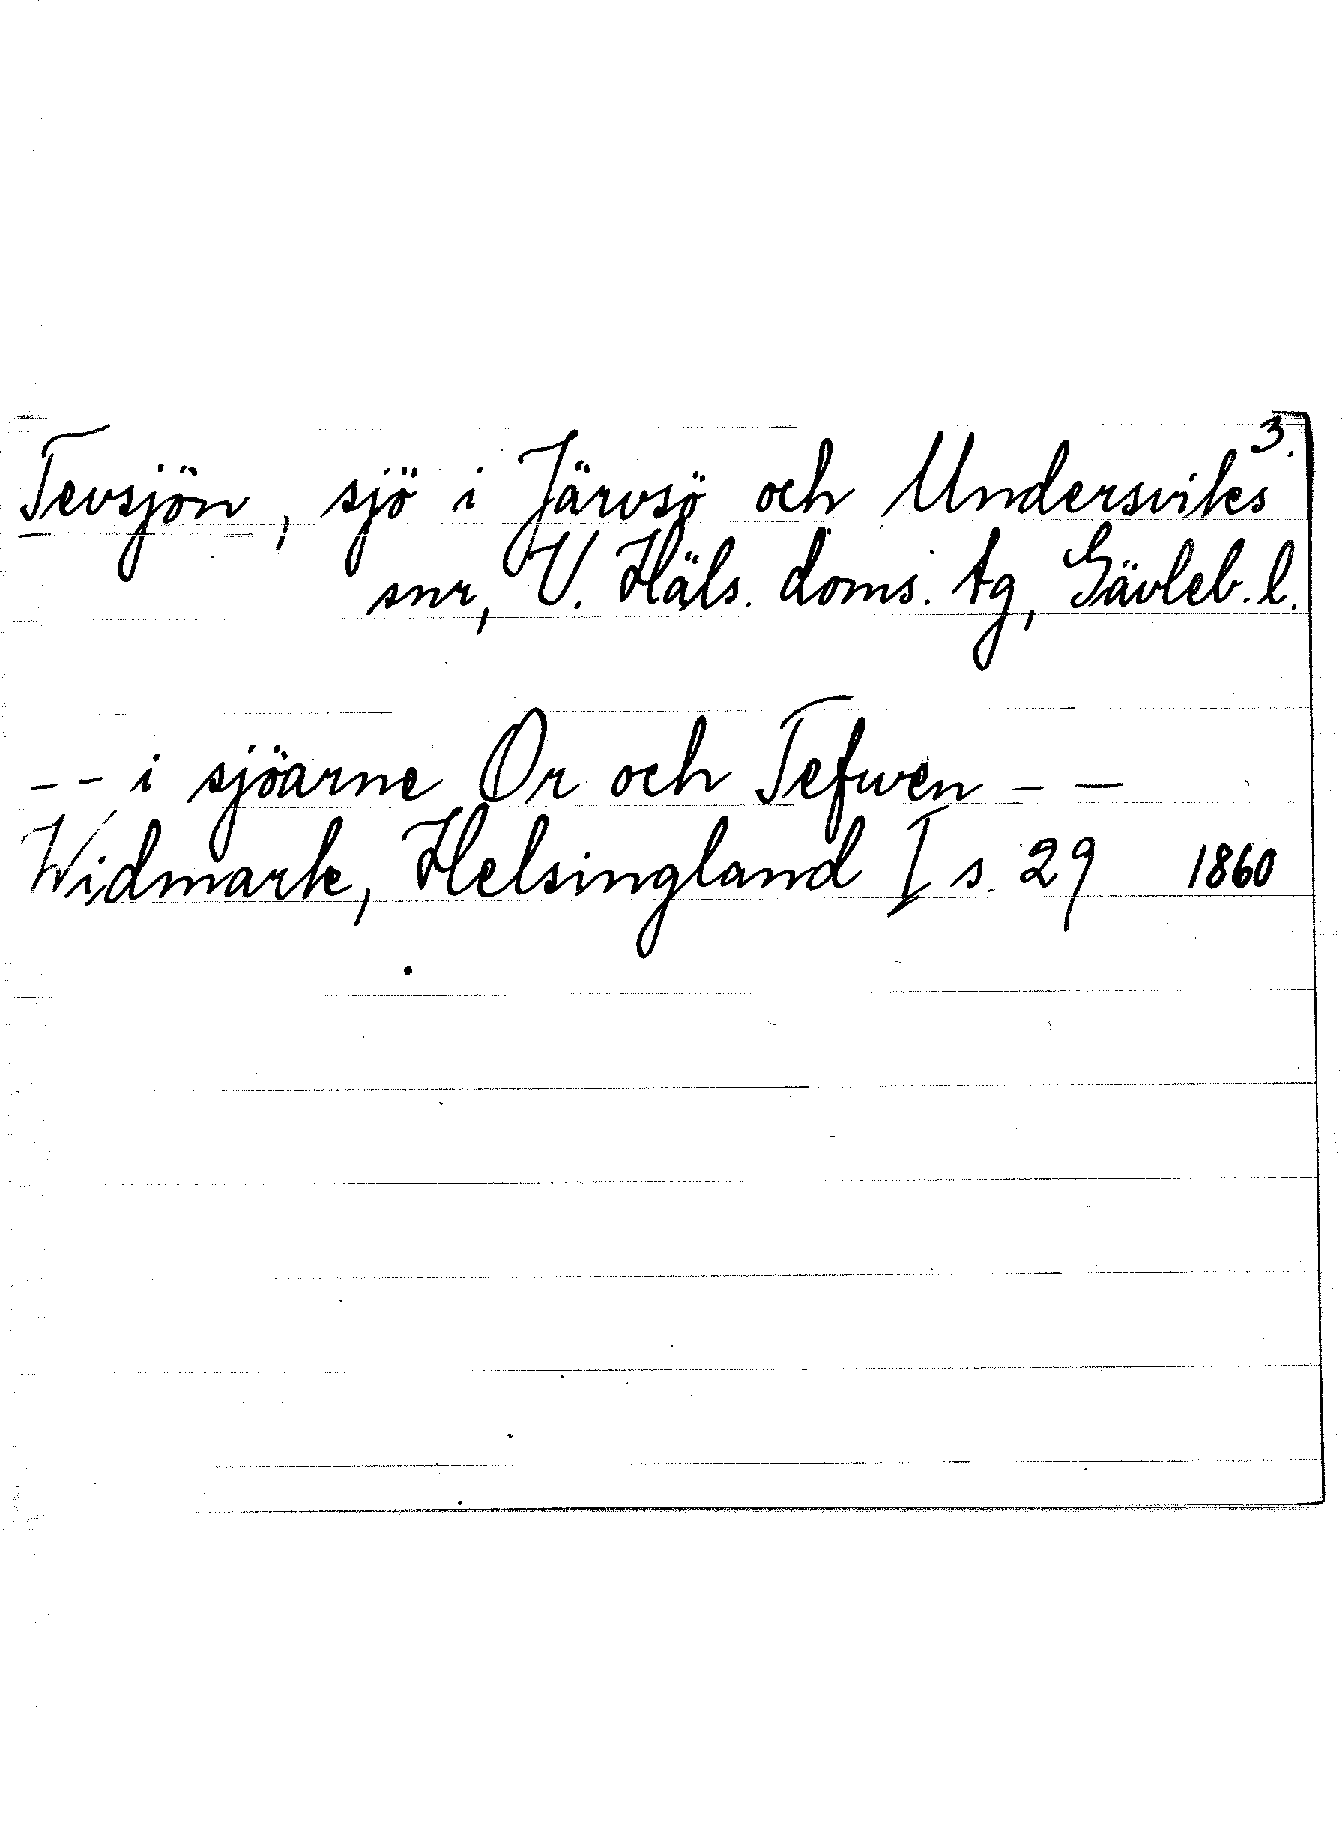 3.
Tevsjön, sjö i Järvsö och Undersviks
snr, V. Häls. doms. tg, Gävleb. l.
-- i sjöarne Or och Tefwen --
Widmark, Helsingland I s. 29 1860